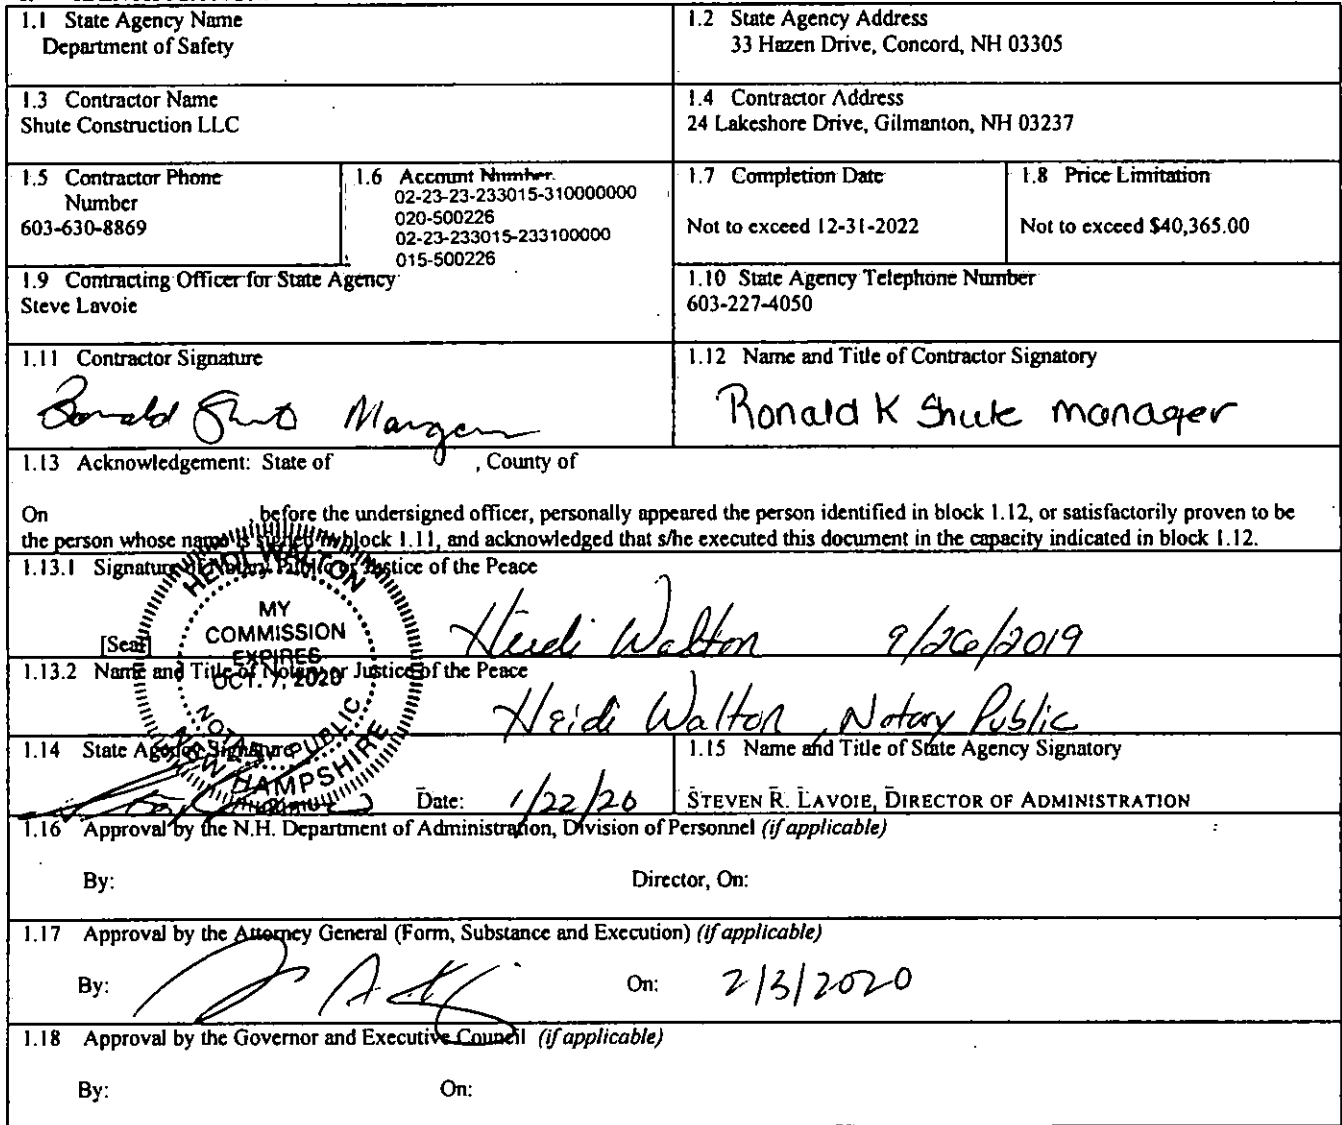 1.1 State Agency Name
Department of Safety
1.2 State Agency Address
33 Hazen Drive, Concord, NH 03305
1.3 Contractor Name
Shute Construction LLC
1.4 Contractor Address
24 Lakeshore Drive, Gilmanton, NH 03237
1.5 Contractor Phone
Number
603-630-8869
1.6 Account Number
02-23-23-233015-310000000
020-500226
02-23-233015-233100000
015-500226
1.7 Completion Date
Not to exceed 12-31-2022
1.8 Price Limitation
Not to exceed $40,365.00
1.9 Contracting Officer for State Agency
Steve Lavoie
1.10 State Agency Telephone Number
603-227-4050
1.11 Contractor Signature
1.12 Name and Title of Contractor Signatory
Ronald K Shute manager
1.13 Acknowledgement: State of , County of
On before the undersigned officer, personally appeared the person identified in block 1.12, or satisfactorily proven to be
the person whose name is signed in block 1.11, and acknowledged that s/he executed this document in the capacity indicated in block 1.12.
1.13.1 Signature of Notary Public or Justice of the Peace
HEIDI WALTON
MY
COMMISSION
EXPIRES
OCT. 7, 2020
NOTARY PUBLIC
NEW HAMPSHIRE
[Seal]
Heidi Walton 9/26/2019
1.13.2 Name and Title of Notary or Justice of the Peace
Heidi Walton, Notary Public
1.14 State Agency Signature
Date: 1/22/20
1.15 Name and Title of State Agency Signatory
STEVEN R. LAVOIE, DIRECTOR OF ADMINISTRATION
1.16 Approval by the N.H. Department of Administration, Division of Personnel (if applicable)
By: Director, On:
1.17 Approval by the Attorney General (Form, Substance and Execution) (if applicable)
By: On: 2/3/2020
1.18 Approval by the Governor and Executive Council (if applicable)
By: On: